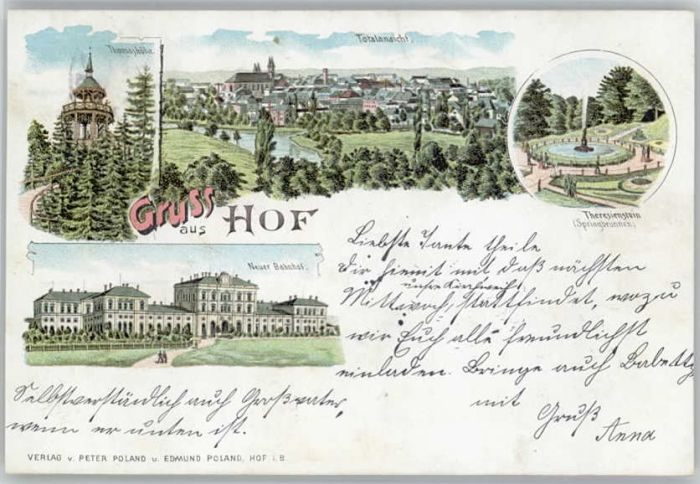 Thomashöhe.
Totalansicht.
Theresienstein
(Springbrunnen)
Gruss
aus HOF
Neuer Bahnhof.
Liebste Tante theile
Dir hiemit mit daß nächsten
unsre Kirchweih
Mittwoch stattfindet, wozu
wir Euch alle freundlichst
einladen. Bringe auch Babette
mit
Gruß
Anna
Selbstverständlich auch Großvater,
wenn er unten ist.
VERLAG v. PETER POLAND u. EDMUND POLAND, HOF i. B